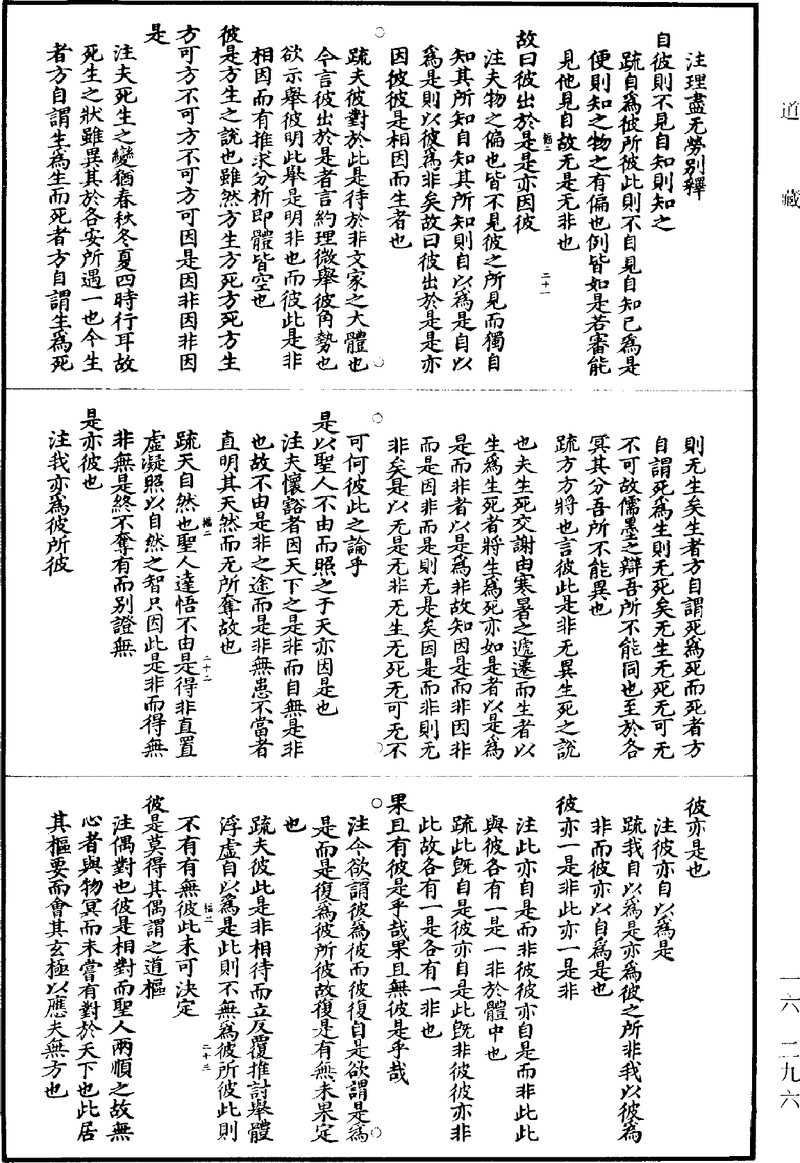 道藏
注理盡无勞別釋
自彼則不見自知則知之
疏自爲彼所彼此則不自見自知己爲是
便則知之物之有偏也例皆如是若審能
見他見自故无是无非也
故曰彼出於是是亦因彼
注夫物之偏也皆不見彼之所見而獨自
知其所知自知其所知則自以爲是自以
爲是則以彼爲非矣故曰彼出於是是亦
因彼彼是相因而生者也
疏夫彼對於此是待於非文家之大體也
今言彼出於是者言約理微舉彼角勢也
欲示舉彼明此舉是明非也而彼此是非
相因而有推求分析即體皆空也
彼是方生之說也雖然方生方死方死方生
方可方不可方不可方可因是因非因非因
是
注夫死生之變猶春秋冬夏四時行耳故
死生之狀雖異其於各安所遇一也今生
者方自謂生爲生而死者方自謂生爲死
則无生矣生者方自謂死爲死而死者方
自謂死爲生則无死矣无生无死无可无
不可故儒墨之辯吾所不能同也至於各
冥其分吾所不能異也
疏方方將也言彼此是非無異生死之說
也夫生死交謝由寒暑之遞遷而生者以
生爲生死者將生爲死亦如是者以是爲
是而非者以是爲非故知因是而非因非
而是因非而是則无是矣因是而非則无
非矣是以无是无非无生无死无可无不
可何彼此之論乎
是以聖人不由而照之于天亦因是也
注夫懷豁者因天下之是非而自無是非
也故不由是非之途而是非無患不當者
直明其天然而无所奪故也
疏天自然也聖人達悟不由是得非直置
虛凝照以自然之智只因此是非而得無
非無是終不奪有而別證無
是亦彼也
注我亦爲彼所彼
彼亦是也
注彼亦自以爲是
疏我自以爲是亦爲彼之所非我以彼爲
非而彼亦以自爲是也
彼亦一是非此亦一是非
注此亦自是而非彼彼亦自是而非此此
與彼各有一是一非於體中也
疏此既自是彼亦自是此既非彼彼亦非
此故各有一是各有一非也
果且有彼是乎哉果且無彼是乎哉
注今欲謂彼爲彼而彼復自是欲謂是爲
是而是復爲彼所彼故復是有無未果定
也
疏夫彼此是非相待而立反覆推討舉體
浮虛自以爲是此則不無爲彼所彼此則
不有有無彼此未可決定
彼是莫得其偶謂之道樞
注偶對也彼是相對而聖人兩順之故無
心者與物冥而未嘗有對於天下也此居
其樞要而會其玄極以應夫無方也
二十一
二十二
二十三
一六 二九六